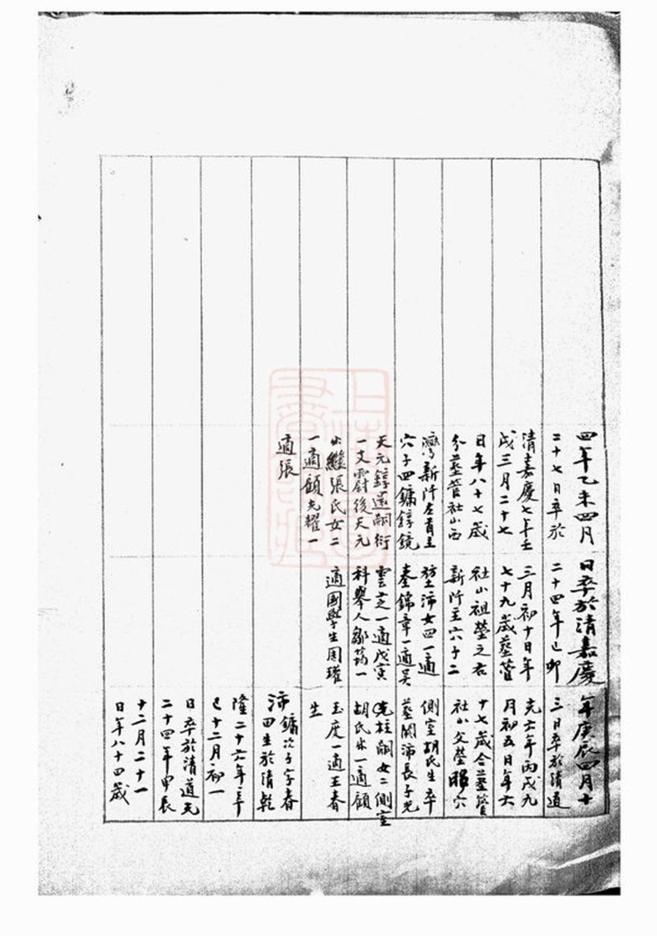 四年乙未四月
二十七日卒於
清嘉慶七年壬
戌三月二十七
日年八十七歲
分葬管社山西
灣新阡左首主
穴子四鏞錞鏡
天元錞還嗣衍
一文霨後天元
出繼張氏女二
一適顧光耀一
適張
日卒於清嘉慶
二十四年己卯
三月初十日年
七十九歲葬管
社山祖塋之右
新阡主穴子二
沛女四一適
秦錦章一適吳
雲芝一適戊寅
科舉人鄒筠一
適國學生周瓘
年庚辰四月十
三日卒於清道
光六年丙戌九
月初五日年六
十七歲合葬管
社山父塋昭穴
側室胡氏生卒
葬闕沛長子光
柱嗣女二側室
胡氏出一適顧
玉度一適王春
生
沛 鏞次子字春
田生於清乾
隆二十六年辛
巳十二月初一
日卒於清道光
二十四年甲辰
十二月二十一
日年八十四歲